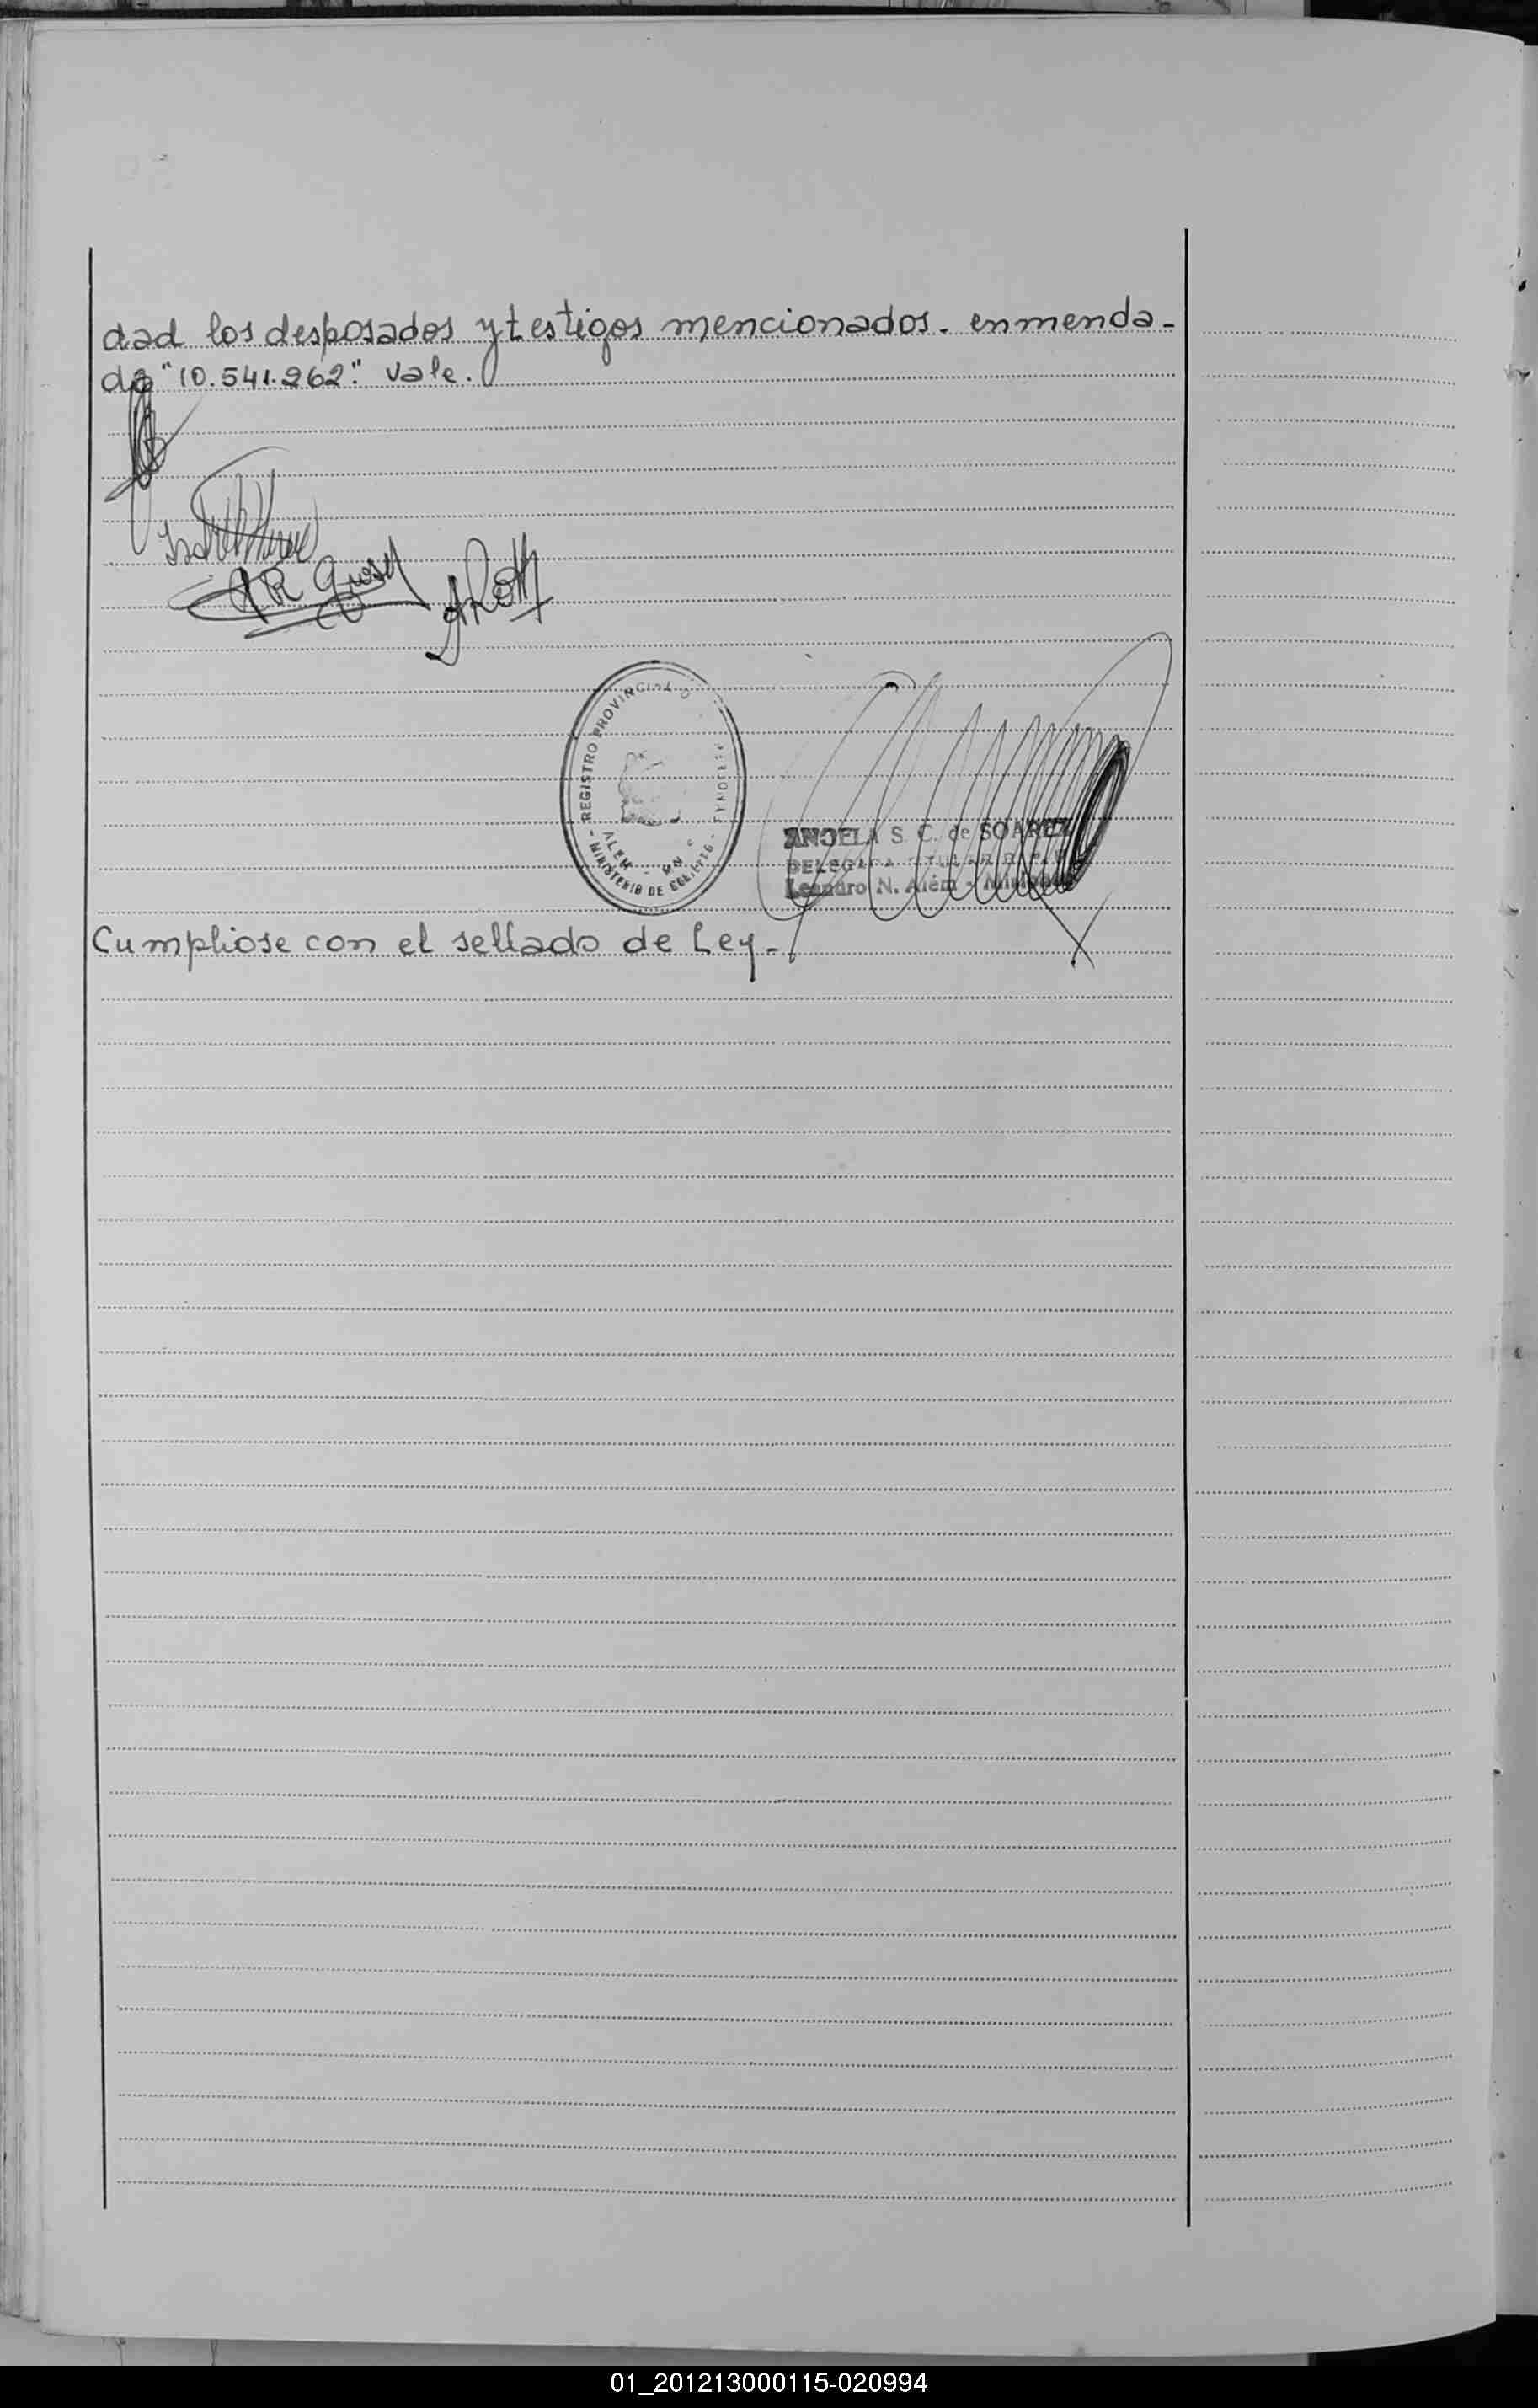 dad los desposados y testigos mencionados. enmenda-
do "10.541.962." vale.
REGISTRO PROVINCIAL D
ALEM - MNES
MINISTERIO DE GOBIERNO
ANGELA S. C. de SOAREZ
DELEGADA TITULAR R. P. P.
Leandro N. Além - Misiones
Cumpliose con el sellado de Ley.-
01_201213000115-020994